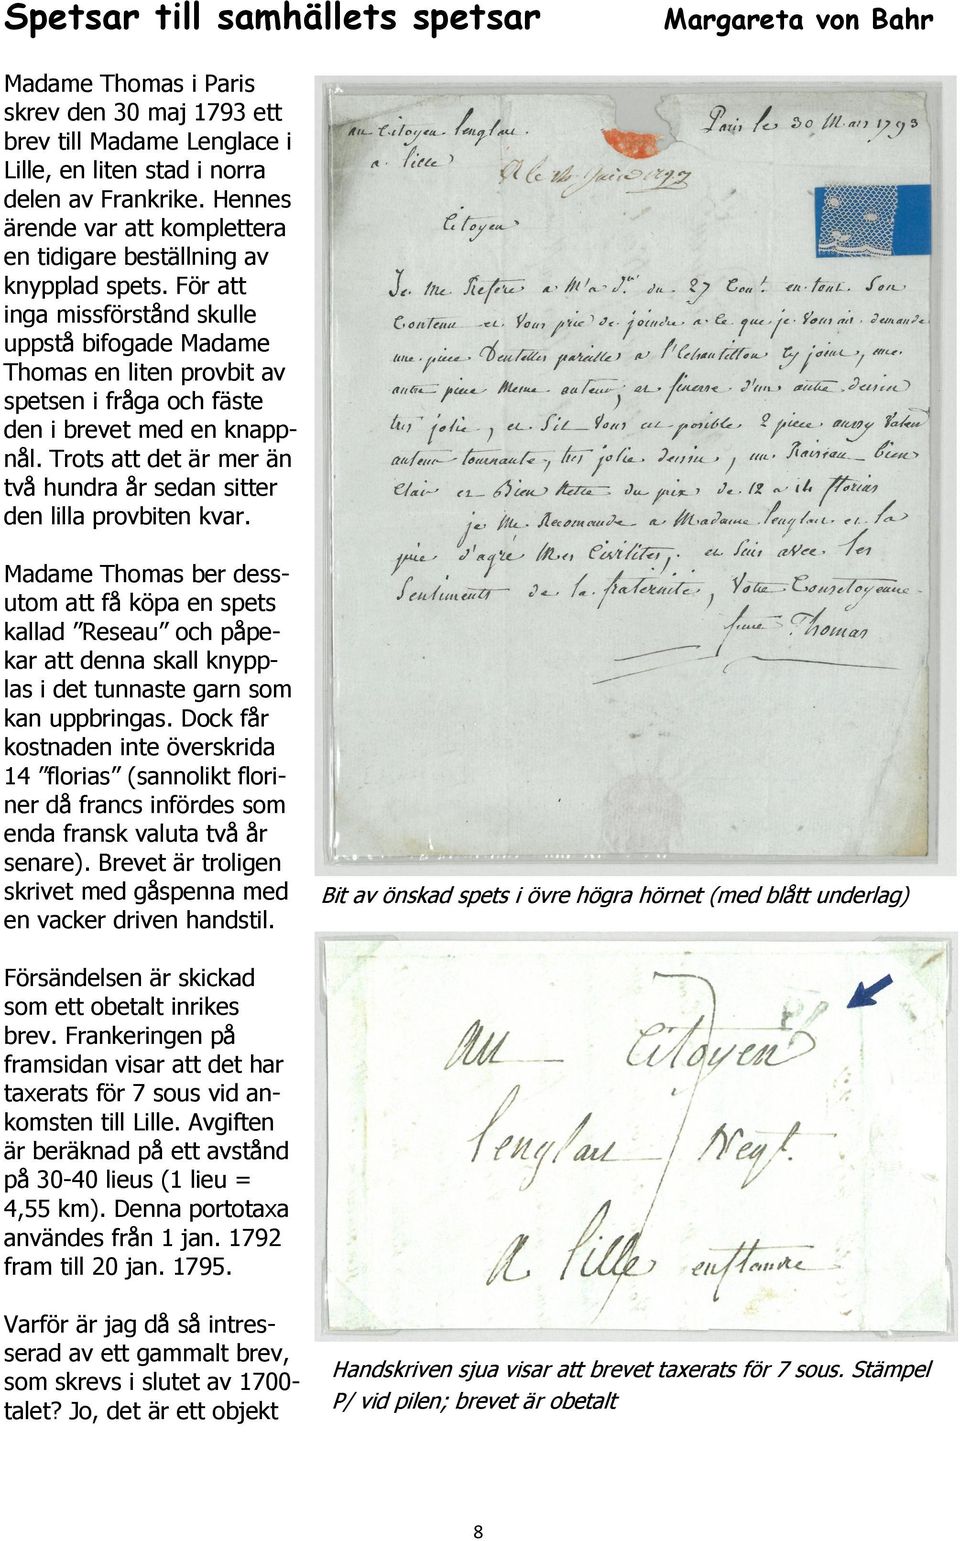 Spetsar till samhällets spetsar
Margareta von Bahr
Madame Thomas i Paris
skrev den 30 maj 1793 ett
brev till Madame Lenglace i
Lille, en liten stad i norra
delen av Frankrike. Hennes
ärende var att komplettera
en tidigare beställning av
knypplad spets. För att
inga missförstånd skulle
uppstå bifogade Madame
Thomas en liten provbit av
spetsen i fråga och fäste
den i brevet med en knapp-
nål. Trots att det är mer än
två hundra år sedan sitter
den lilla provbiten kvar.
Madame Thomas ber dess-
utom att få köpa en spets
kallad ”Reseau” och påpe-
kar att denna skall knypp-
las i det tunnaste garn som
kan uppbringas. Dock får
kostnaden inte överskrida
14 ”florias” (sannolikt flori-
ner då francs infördes som
enda fransk valuta två år
senare). Brevet är troligen
skrivet med gåspenna med
en vacker driven handstil.
Försändelsen är skickad
som ett obetalt inrikes
brev. Frankeringen på
framsidan visar att det har
taxerats för 7 sous vid an-
komsten till Lille. Avgiften
är beräknad på ett avstånd
på 30-40 lieus (1 lieu =
4,55 km). Denna portotaxa
användes från 1 jan. 1792
fram till 20 jan. 1795.
Varför är jag då så intres-
serad av ett gammalt brev,
som skrevs i slutet av 1700-
talet? Jo, det är ett objekt
au Citoyen lenglau
Paris le 30 Mars 1793
a lille
Citoyen
Je Me Refere a M'a du 27 Cout. en tout Son
Contenu et Vous prie de joindre a Ce que je Vous ai demande
une piece Dentelles pareille a l'Echantillon Cy joint, une
autre piece Meme auteur, et finesse d'un autre dessin
tres jolie, et Sil Vous est posible 2 piece aussy
auteur tournante, tres jolie dessin, un Raiseau Bien
Clair et Bien Nette du prix de 12 a 14 florias
je Me Recomande a Madame lenglau et la
prie d'agré Mes Civilites, et Suis avec les
Sentiments de la fraternite, Votre Consetoyenne
Thomas
Bit av önskad spets i övre högra hörnet (med blått underlag)
au Citoyen
lenglau Negt.
a lille en flandre
Handskriven sjua visar att brevet taxerats för 7 sous. Stämpel
P/ vid pilen; brevet är obetalt
8